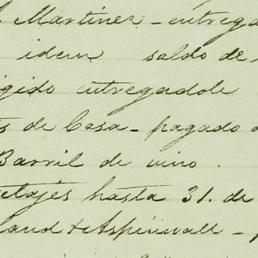 Martinez - entregad
idem saldo de
igido entregadole
de Casa - pagado a
Barril de vino.
etajes hasta 31. de
land & Aspinwall -